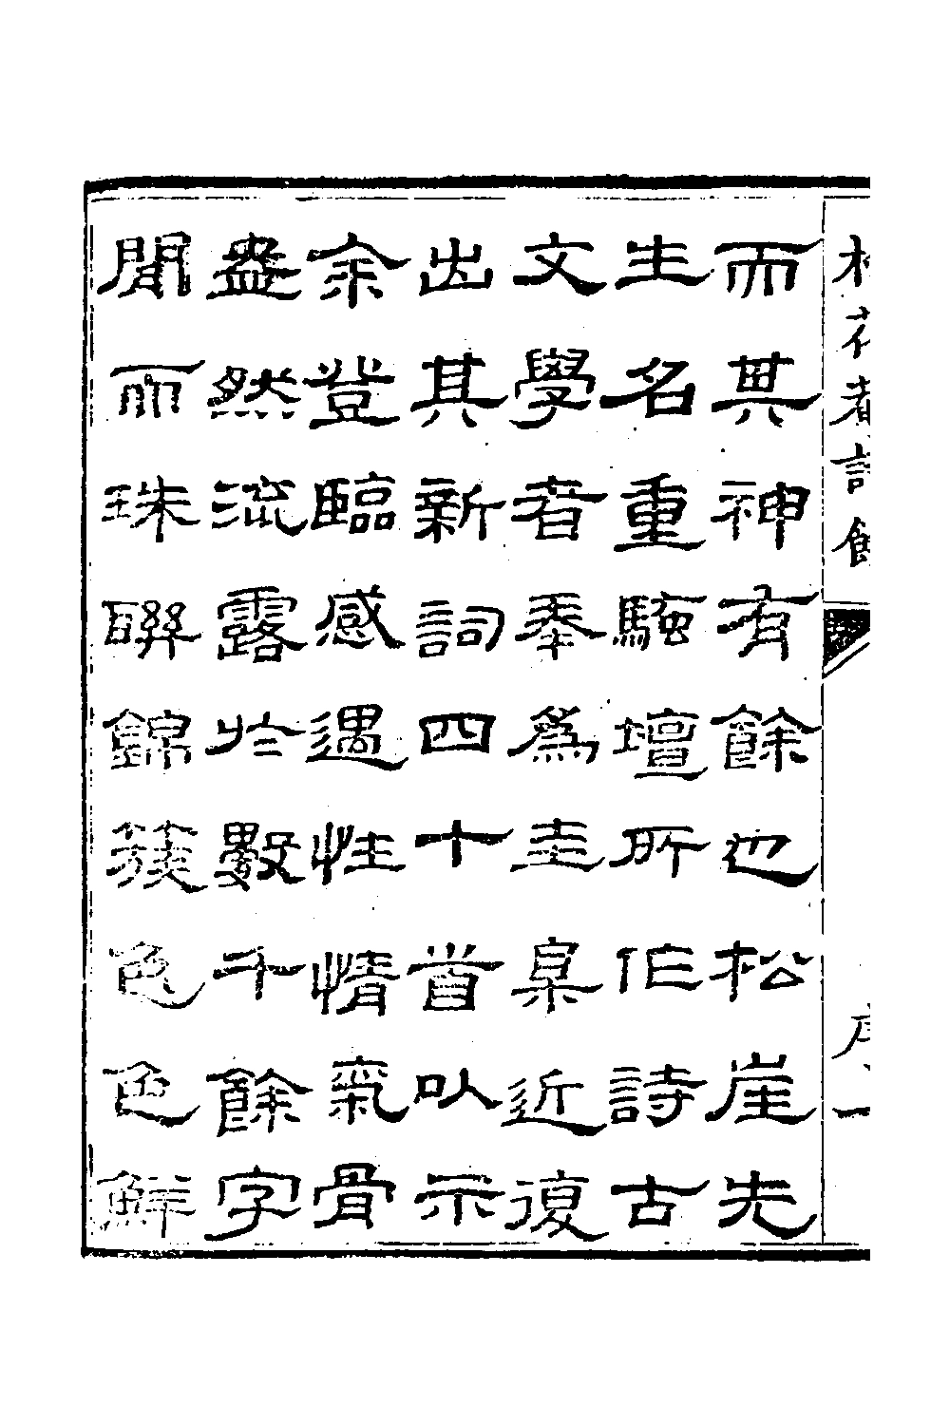 而其神有餘也松崖先
生名重騷壇所作詩古
文學者奉為圭臬近復
出其新詞四十首以示
余登臨感遇性情氣骨
盎然流露於數千餘字
間而珠聯錦簇色色鮮
花者詩餘